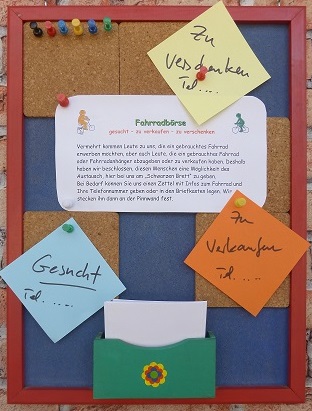 Zu
Verschenken
Tel. ....
Fahrradbörse
gesucht - zu verkaufen - zu verschenken
Vermehrt kommen Leute zu uns, die ein gebrauchtes Fahrrad
erwerben möchten, aber auch Leute, die ein gebrauchtes Fahrrad
oder Fahrradanhänger abzugeben oder zu verkaufen haben. Deshalb
haben wir beschlossen, diesen Menschen eine Möglichkeit des
Austausch, hier bei uns am „Schwarzen Brett“ zu geben.
Bei Bedarf können Sie uns einen Zettel mit Infos zum Fahrrad und
Ihre Telefonnummer geben oder in den Briefkasten legen. Wir
stecken ihn dann an der Pinnwand fest.
Zu
Verkaufen
Tel. ....
Gesucht
Tel. ....